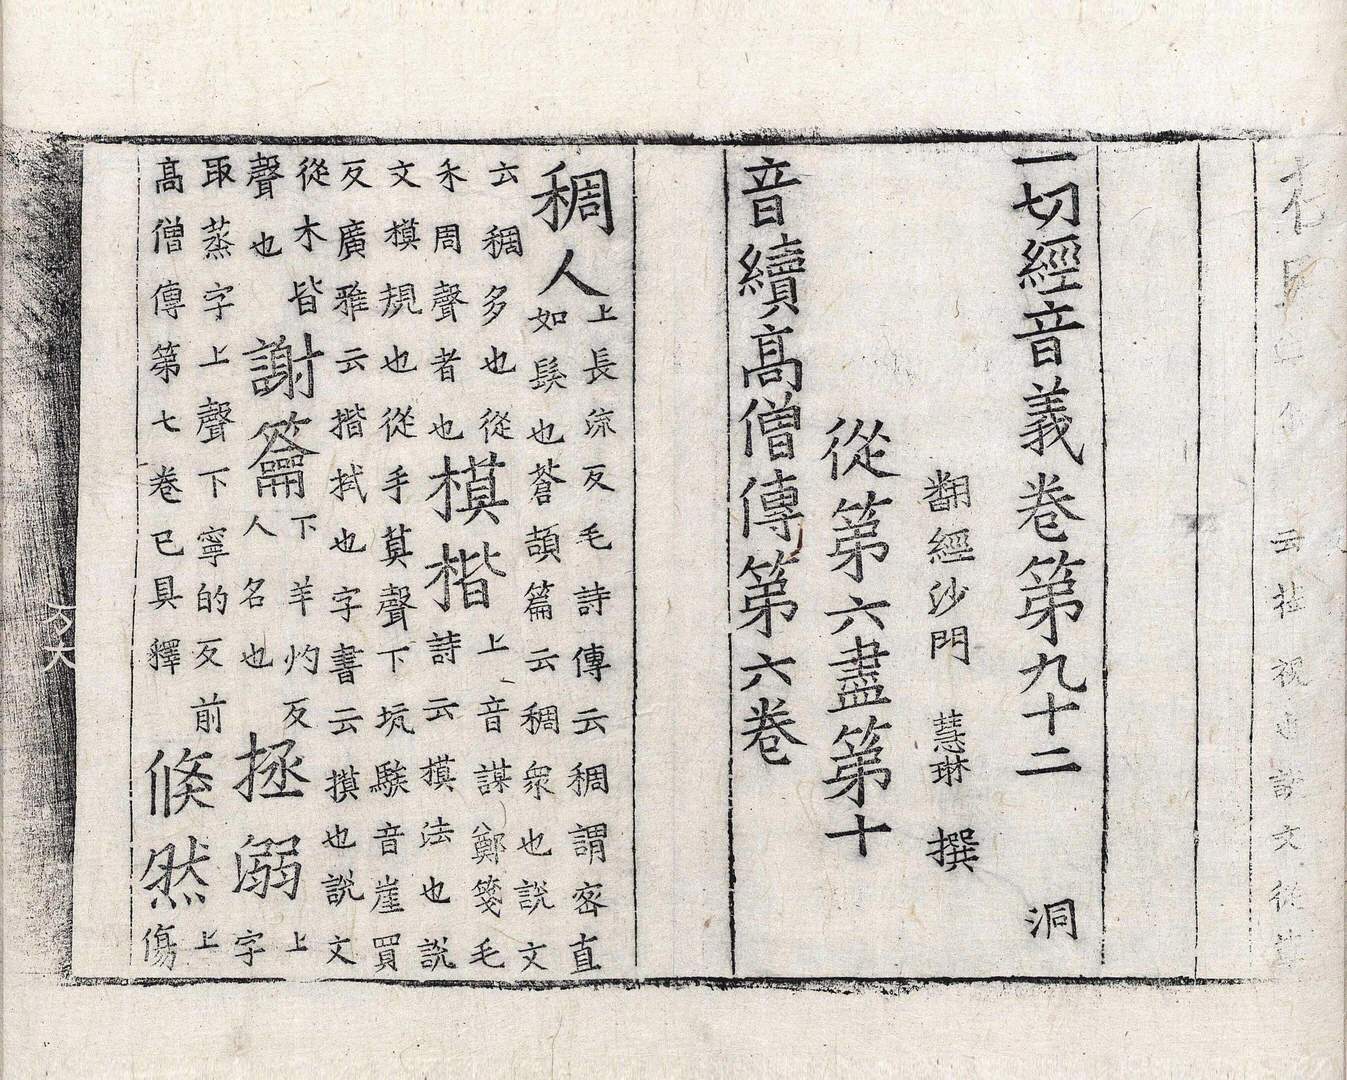 一切經音義卷第九十二 洞
翻經沙門 慧琳 撰
從第六盡第十
音續高僧傳第六卷
稠人 上長流反毛詩傳云稠謂密直如髮也蒼頡篇云稠衆也說文
云稠多也從禾周聲者也 模楷 上音謀鄭箋毛詩云摸法也說
文模規也從手莫聲下坑騃音崖買反廣雅云揩拭也字書云摸也說文
從木皆聲也 謝籥 下羊灼反人名也 拯溺 上字
取蒸字上聲下寧的反前高僧傳第七卷已具釋 倏然 上傷